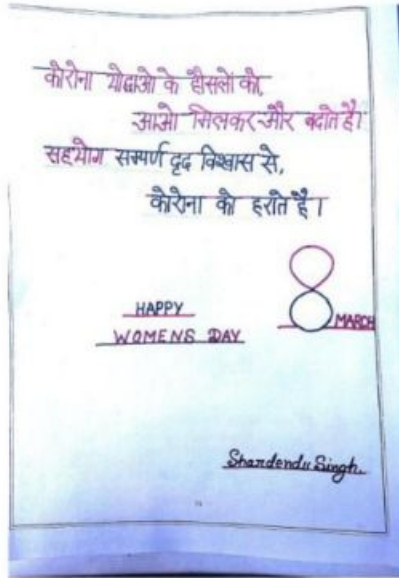 कोरोना योद्धाओ के हौसलों को,
आओ मिलकर और बढ़ाते है।
सहयोग सम्पर्ण दृढ विश्वास से,
कोरोना को हराते है।
8 MARCH
HAPPY
WOMENS DAY
Shardendu Singh.